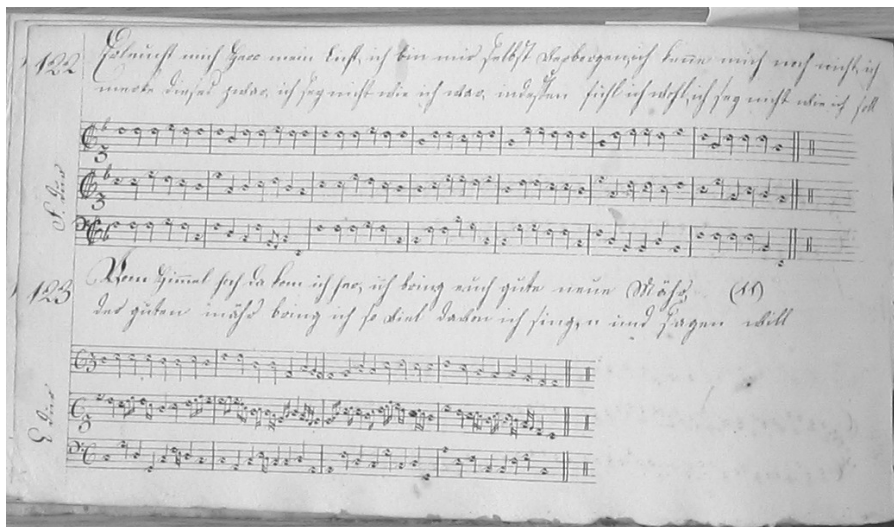 122 Erleucht mich Herr mein Licht, ich bin mir selbst verborgen, ich kenne mich noch nicht, ich
merke dieses zwar, ich sey nicht wie ich war, indessen fühl ich wohl, ich sey nicht wie ich soll
F. dur
123 Vom Himmel hoch da kom ich her, ich bring euch gute neue Mähr,
der guten mähr bring ich so viel davon ich singen und sagen will